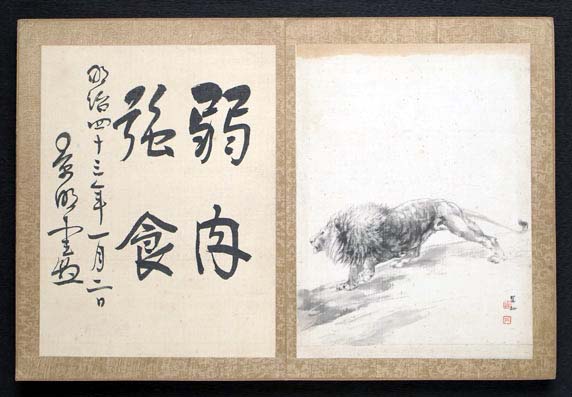 弱肉
強食
明治四十三年一月二日